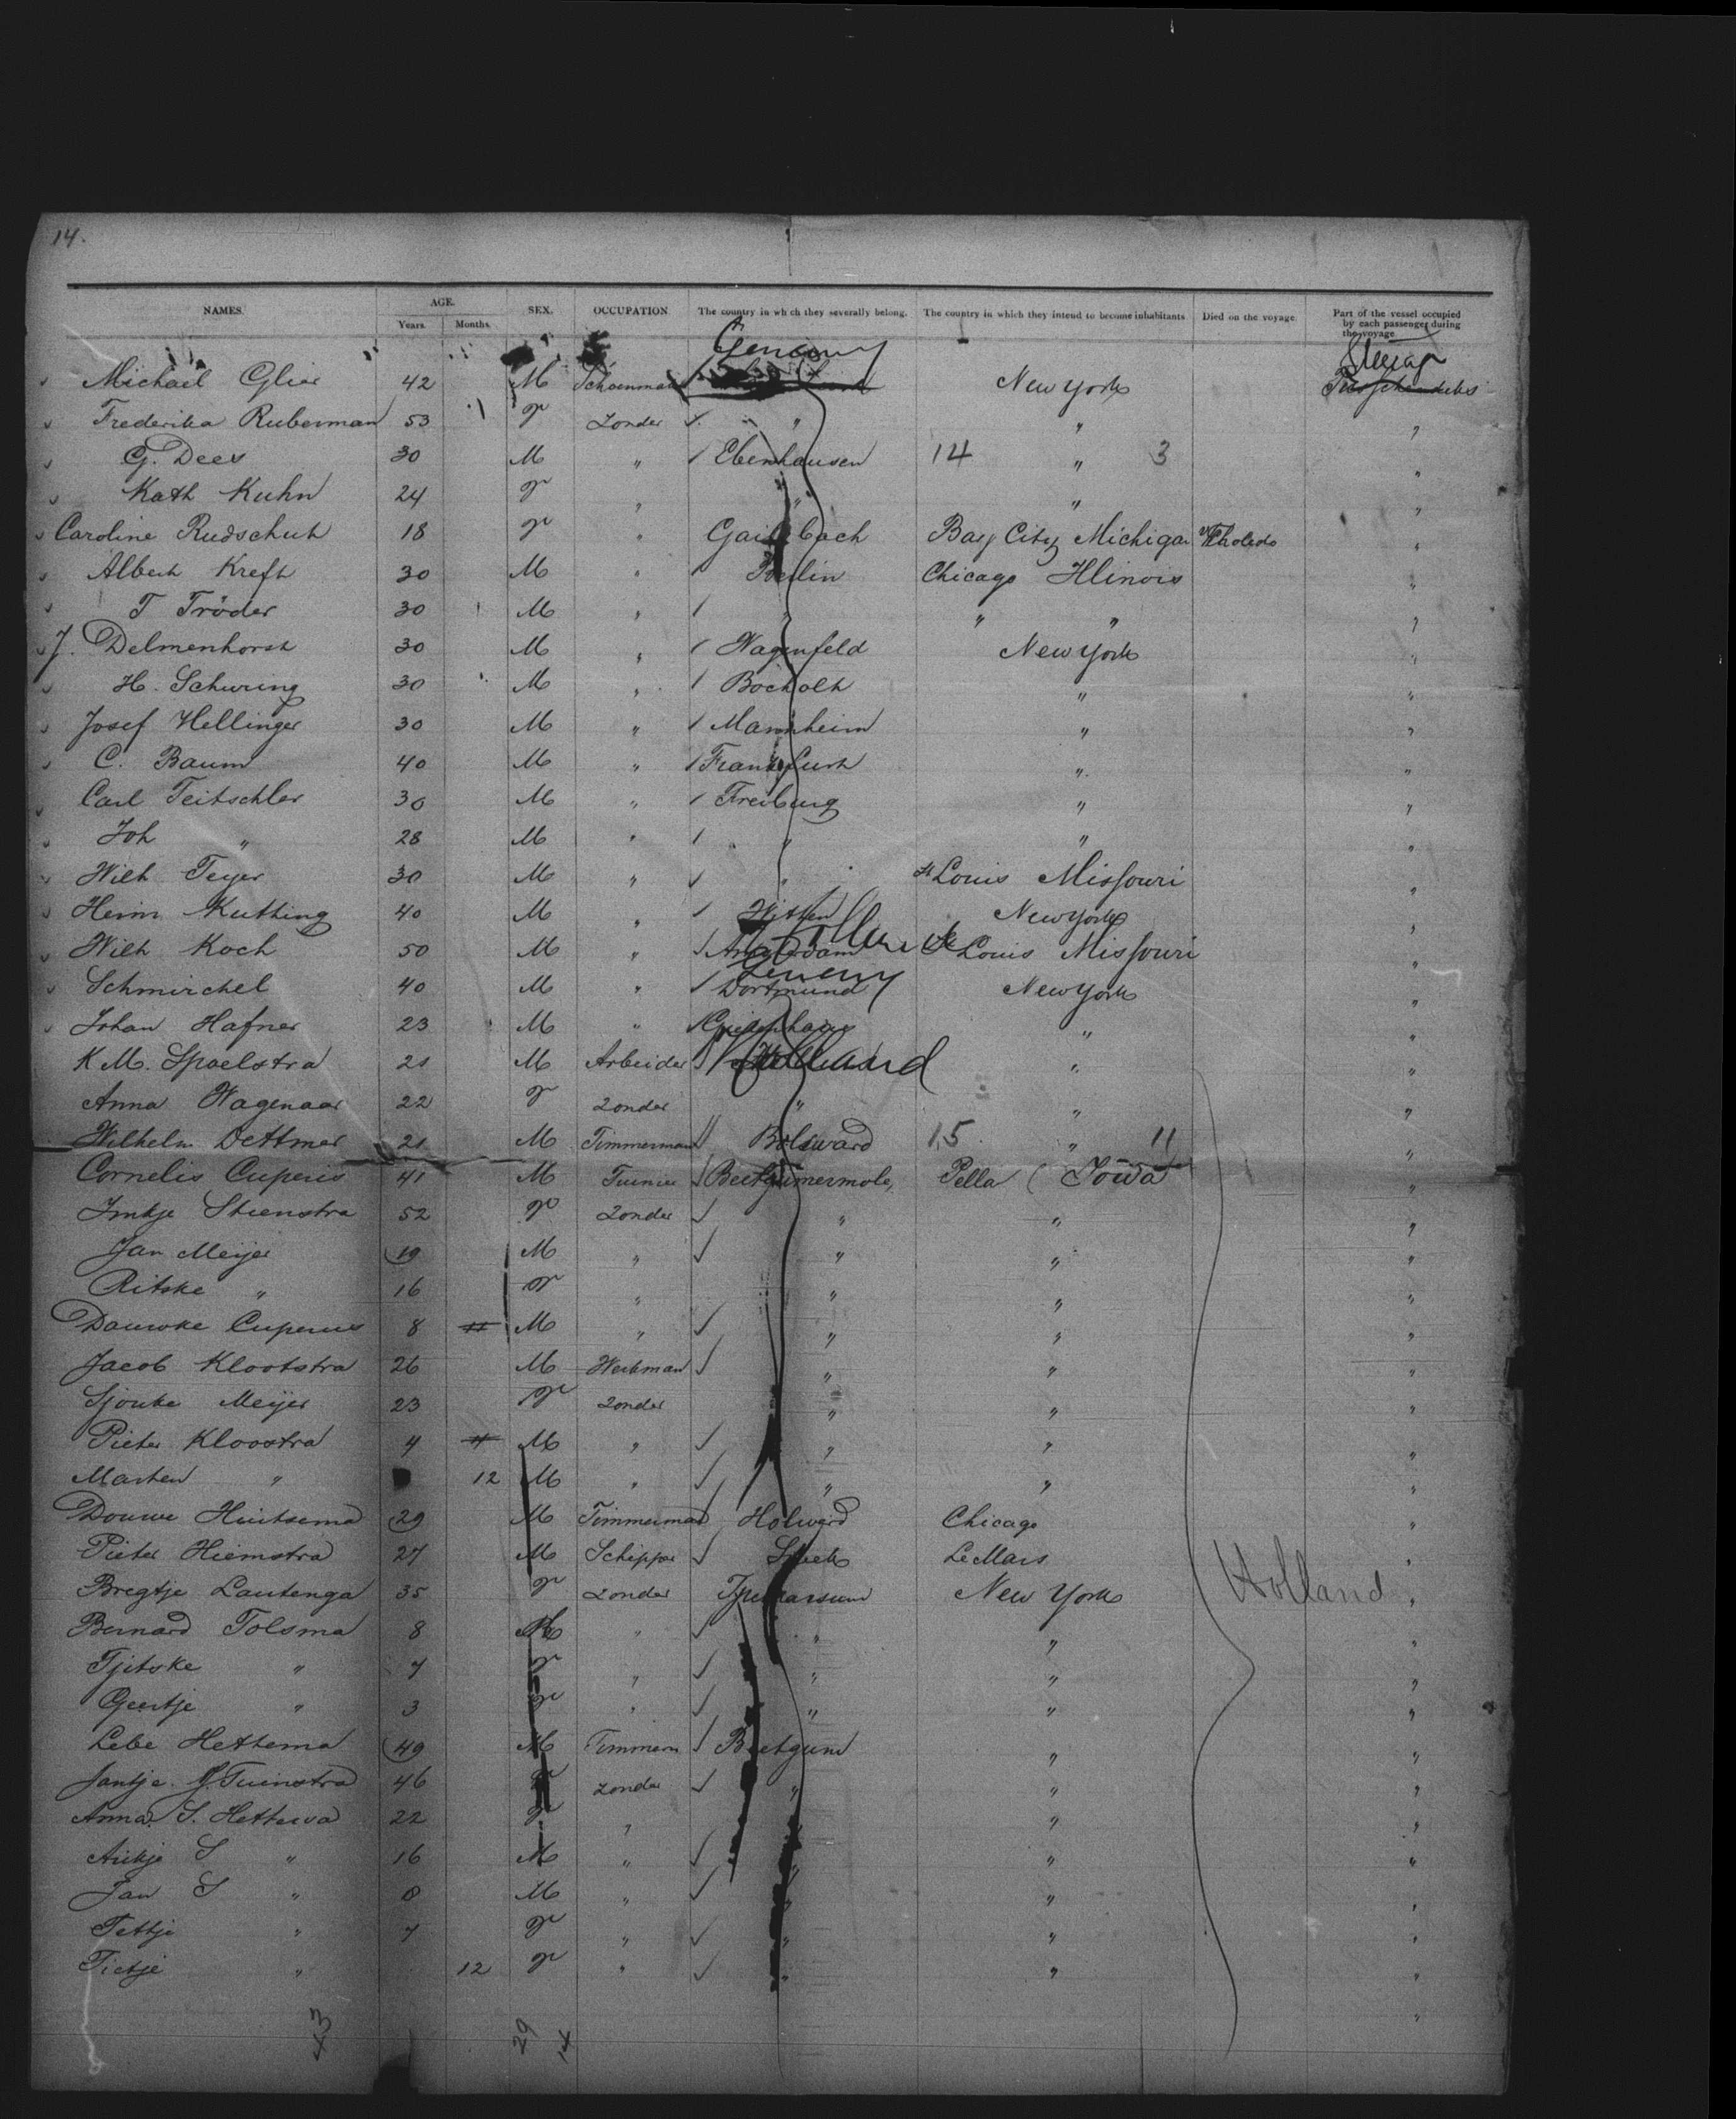 14.
NAMES. AGE. SEX. OCCUPATION. The country in which they severally belong. The country in which they intend to become inhabitants. Died on the voyage. Part of the vessel occupied by each passenger during the voyage.
Years. Months.
Germany
Michael Glier 42 M Schoenmaker New York
Frederika Ruberman 53 V Zonder " " "
G. Dees 30 M " Ebenhausen 14 " 3 "
Kath Kuhn 24 V " " " "
Caroline Rudschuh 18 V " Bay City Michigan "
Albert Kreft 30 M " Berlin Chicago Illinois "
T Tröder 30 M " " " " "
J. Delmenhorst 30 M " Wagenfeld New York "
H. Schuring 30 M " Bocholt " "
Josef Hellinger 30 M " Mannheim " "
C. Baum 40 M " Frankfurt " "
Carl Teitschler 30 M " Freiburg " "
Joh " 28 M " " " "
Wilh Teyer 30 M " " St Louis Missouri "
Heinr Kutting 40 M " Witten New York "
Holland
Wilh Koch 50 M " Amsterdam St Louis Missouri "
Germany
Schmirchel 40 M " Dortmund New York "
Johan Hafner 23 M " " "
K M. Spoelstra 21 M Arbeider Holland " "
Anna Wagenaar 22 V Zonder " " "
Wilhelm Dettmer 21 M Timmerman Bolsward 15 " 11 "
Cornelis Cuperis 41 M Beetgumermole, Pella (Iowa) "
Imkje Stienstra 52 V Zonder " " "
Jan Meijer 19 M " " " "
Ritske " 16 V " " " "
Douwke Cuperus 8 M " " " "
Jacob Klootstra 26 M Werkman " " "
Sjouke Meijer 23 V Zonder " " "
Pieter Kloostra 4 M " " " "
Marten " 12 M " " " "
Douwe Huitsema 29 M Timmerman Holward Chicago "
Pieter Hiemstra 27 M Schipper Sneek LeMars "
Bregtje Lautenga 35 V Zonder New York Holland "
Bernard Tolsma 8 M " " " "
Tjitske " 7 V " " " "
Geertje " 3 V " " " "
Lebe Hettema 49 M Timmerm Beetgum " "
Jantje J. Tuinstra 46 V Zonder " " "
Anna S. Hettema 22 V " " "
Aukje S " 16 M " " " "
Jan S " 8 M " " " "
Tettje " 7 V " " " "
Tietje " 12 V " " " "
"
43 29 14